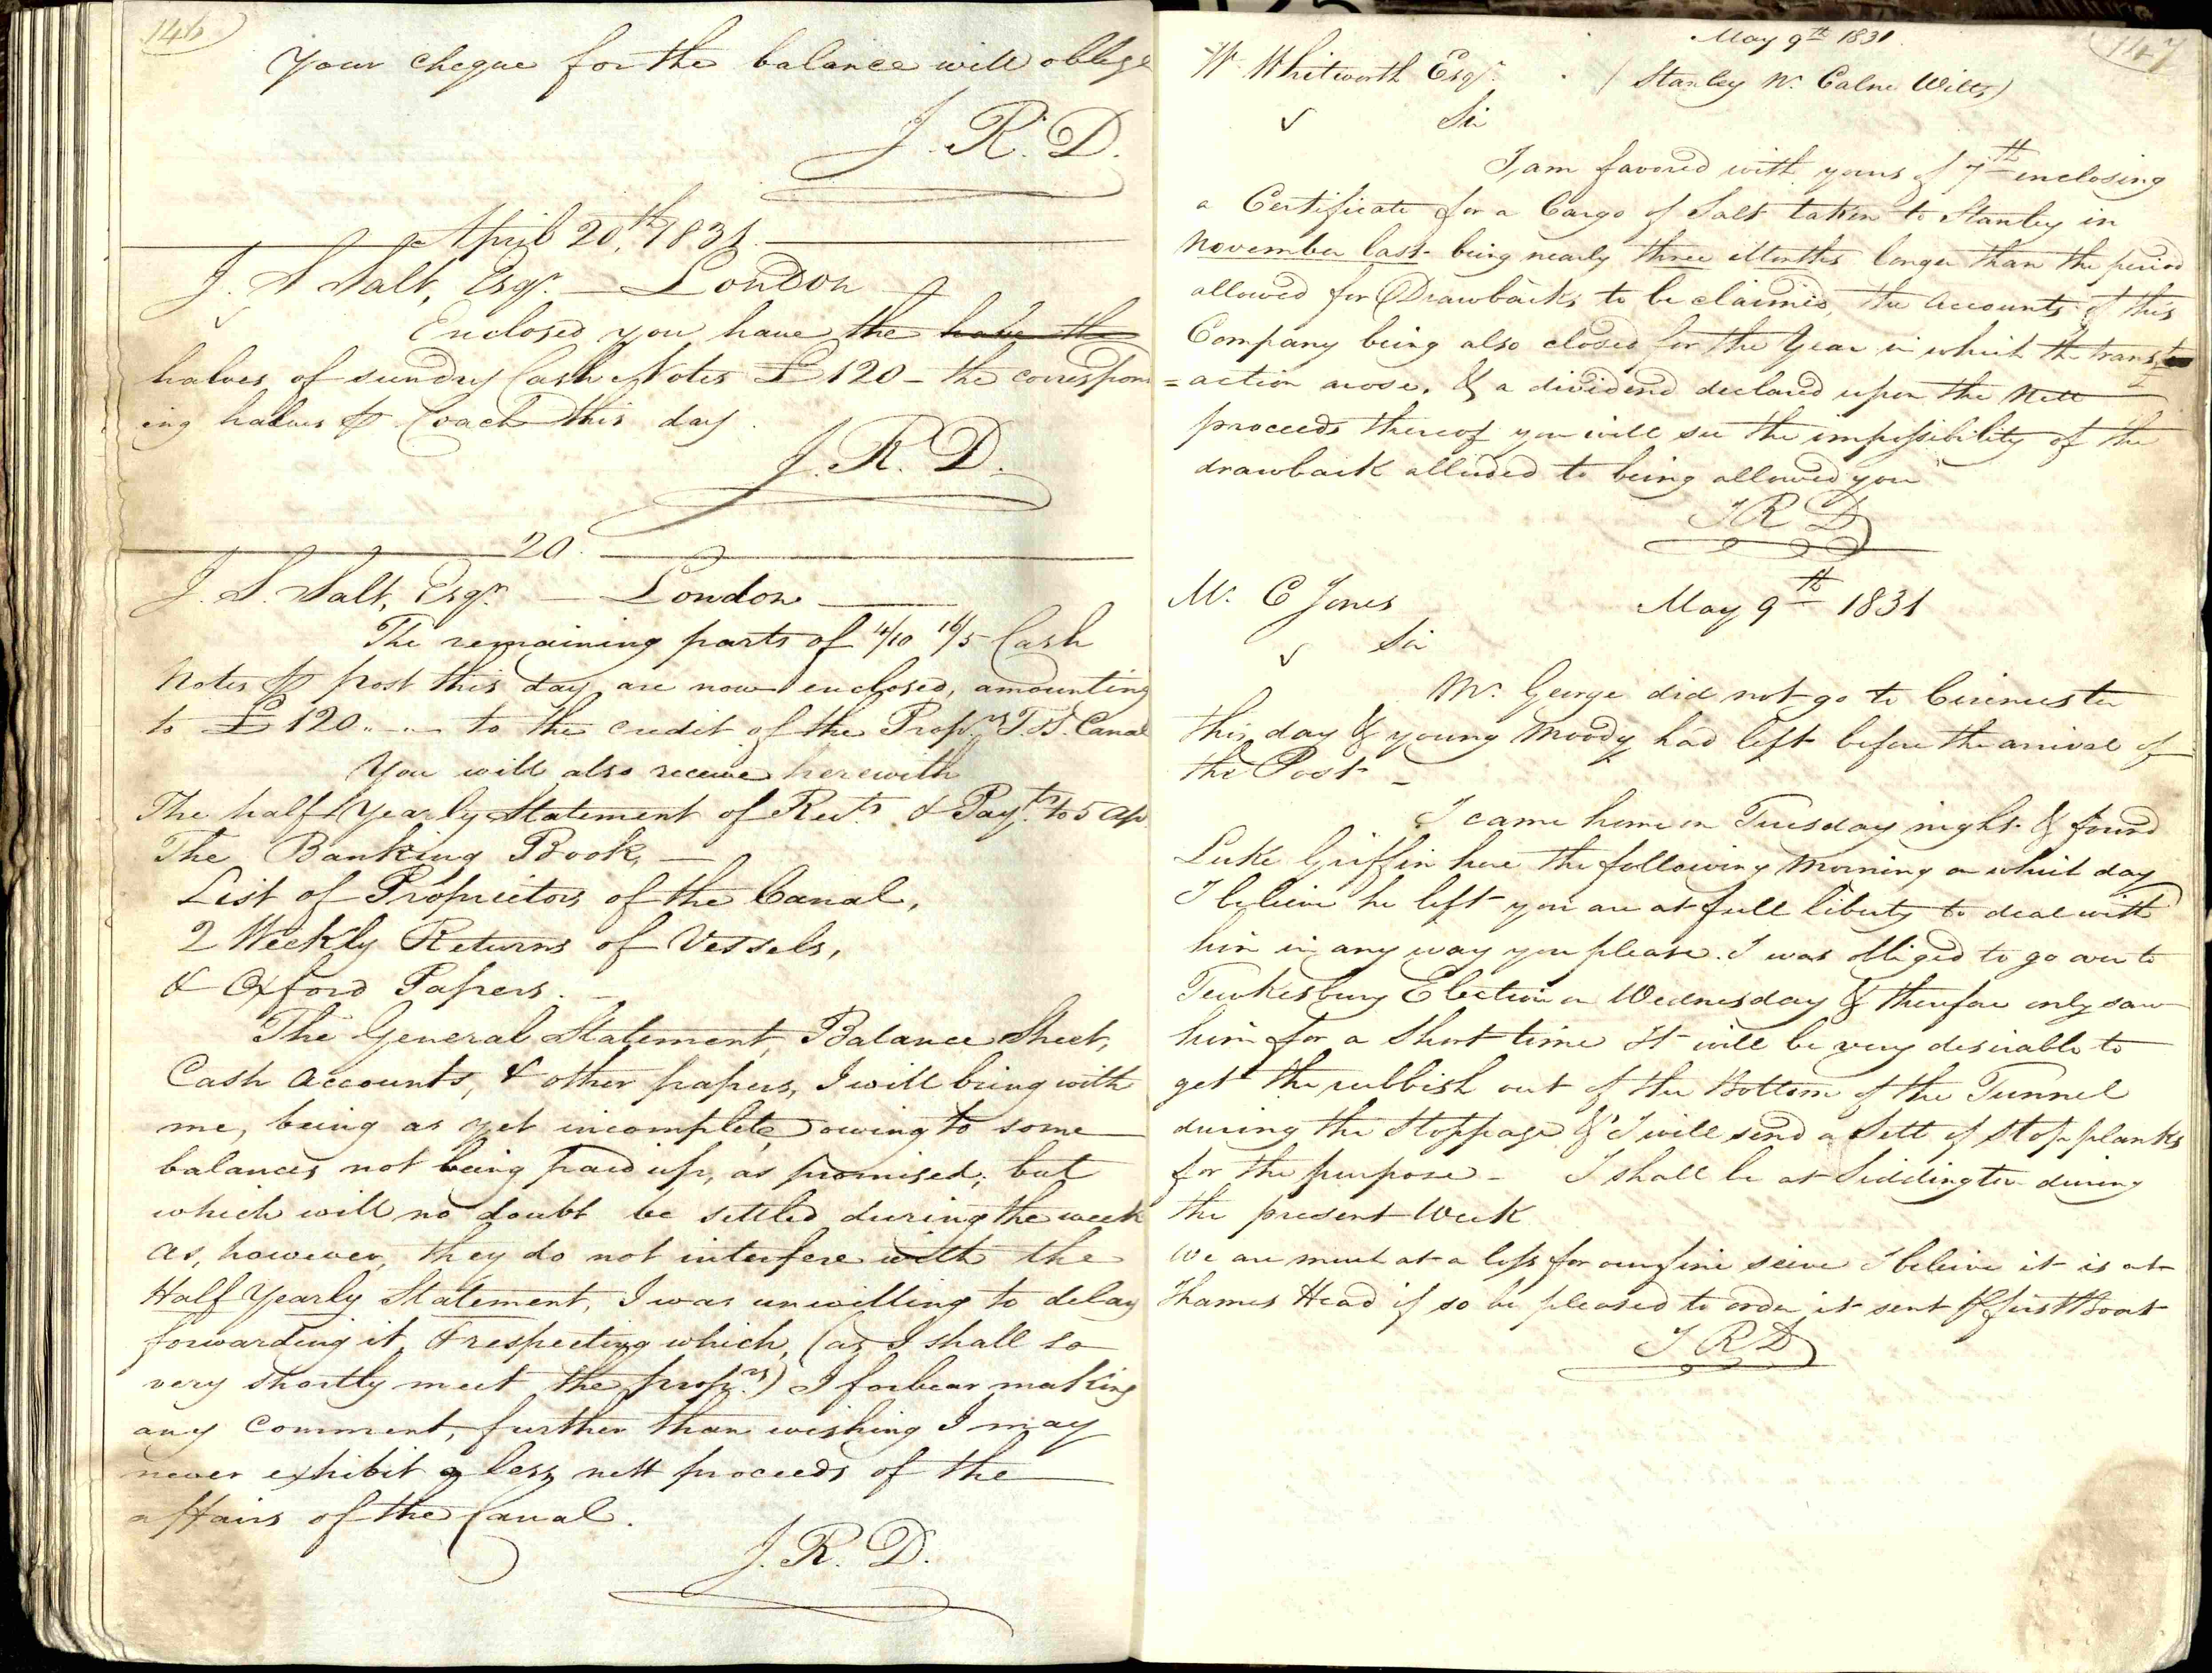 146
Your cheque for the balance will oblige
J. R. D.
April 20th, 1831.
J. S Salt, Esqr. — London
Enclosed you have the have the
halves of sundry Cash Notes £120 – the correspond
ing halves ⅌ Coach this day.
J. R. D.
20.
J. S. Salt, Esqr. — London
The remaining parts of 4/10 16/5 Cash
Notes ⅌ post this day are now enclosed, amounting
to £120.. — .. — to the credit of the Proprs T. S. Canal
You will also receive herewith
The half Yearly Statement of Rects. & Payts. to 5 Ap
The Banking Book, —
List of Proprietors of the Canal,
2 Weekly Returns of Vessels,
& Oxford Papers. —
The General Statement, Balance Sheet,
Cash Accounts, & other papers, I will bring with
me, being as yet incomplete owing to some
balances not being paid up, as promised; but
which will no doubt be settled during the week
as, however, they do not interfere with the
Half Yearly Statement, I was unwilling to delay
forwarding it, & respecting which, (as I shall so
very shortly meet the proprs.) I forbear making
any comment, further than wishing I may
never exhibit a less nett proceeds of the
affairs of the Canal.
J. R. D.
147
May 9th 1831.
W. Whitworth Esqr. (Stanley Nr. Calne Wilts)
Sir
I am favored with yours of 7th enclosing
a Certificate for a Cargo of Salt taken to Stanley in
November last being nearly three Months longer than the period
allowed for Drawbacks to be claimed, the Accounts of this
Company being also closed for the Year in which the trans
=action arose, & a dividend declared upon the Nett
proceeds thereof you will see the impossibility of the
drawback alluded to being allowed you
J R D
Mr. C Jones May 9th 1831
Sir
Mr. George did not go to Cirencester
this day & young Moody had left before the arrival of
the Post –
I came home on Tuesday night & found
Luke Griffin here the following Morning on which day
I believe he left you are at full liberty to deal with
him in any way you please. I was obliged to go over to
Tewkesbury Election on Wednesday & therefore only saw
him for a Short time It will be very desirable to
get the rubbish out of the Bottom of the Tunnel
during the Stoppage & I will send a Sett of Stop planks
for the purpose – I shall be at Siddington during
the present Week
We are much at a loss for our fine seive I beleive it is at
Thames Head if so be pleased to order it sent ⅌ first Boat
J R D